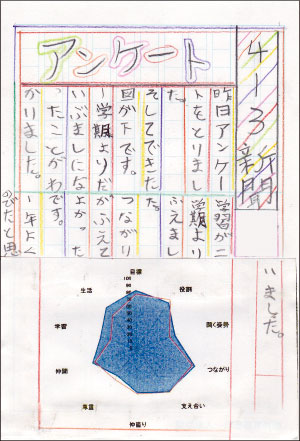 4-3新聞
アンケート
昨日アンケー
トをとりまし
た。
そしてできた
図が下です。
1学期よりだ
いぶましにな
ったことがわ
かりました。
学習が二
学期より
ふえまし
た。
つながり
がふえて
よかった
です。
1年よく
のびたと思
いました。
目標
役割
聞く姿勢
つながり
支え合い
仲直り
仲間
学習
生活
100